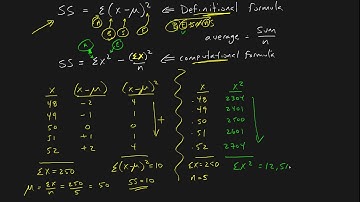 SS = Σ(x-μ)² ⇐ Definitional formula
average = sum/n
SS = Σx² - (Σx)²/n ⇐ computational formula
x (x-μ) (x-μ)²
48 -2 4
49 -1 1
50 0 0
51 +1 1
52 +2 4
Σx=250 Σ(x-μ)²=10
μ = Σx/n = 250/5 = 50 SS=10
x x²
48 2304
49 2401
50 2500
51 2601
52 2704
Σx=250 Σx² = 12,51
n=5